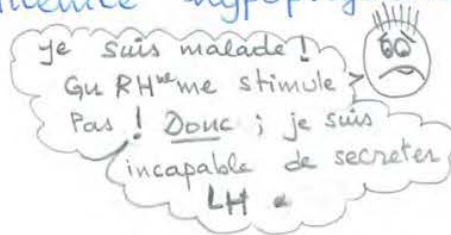 hypop
Je suis malade !
GnRH me stimule
Pas ! Donc ; je suis
incapable de secreter
LH